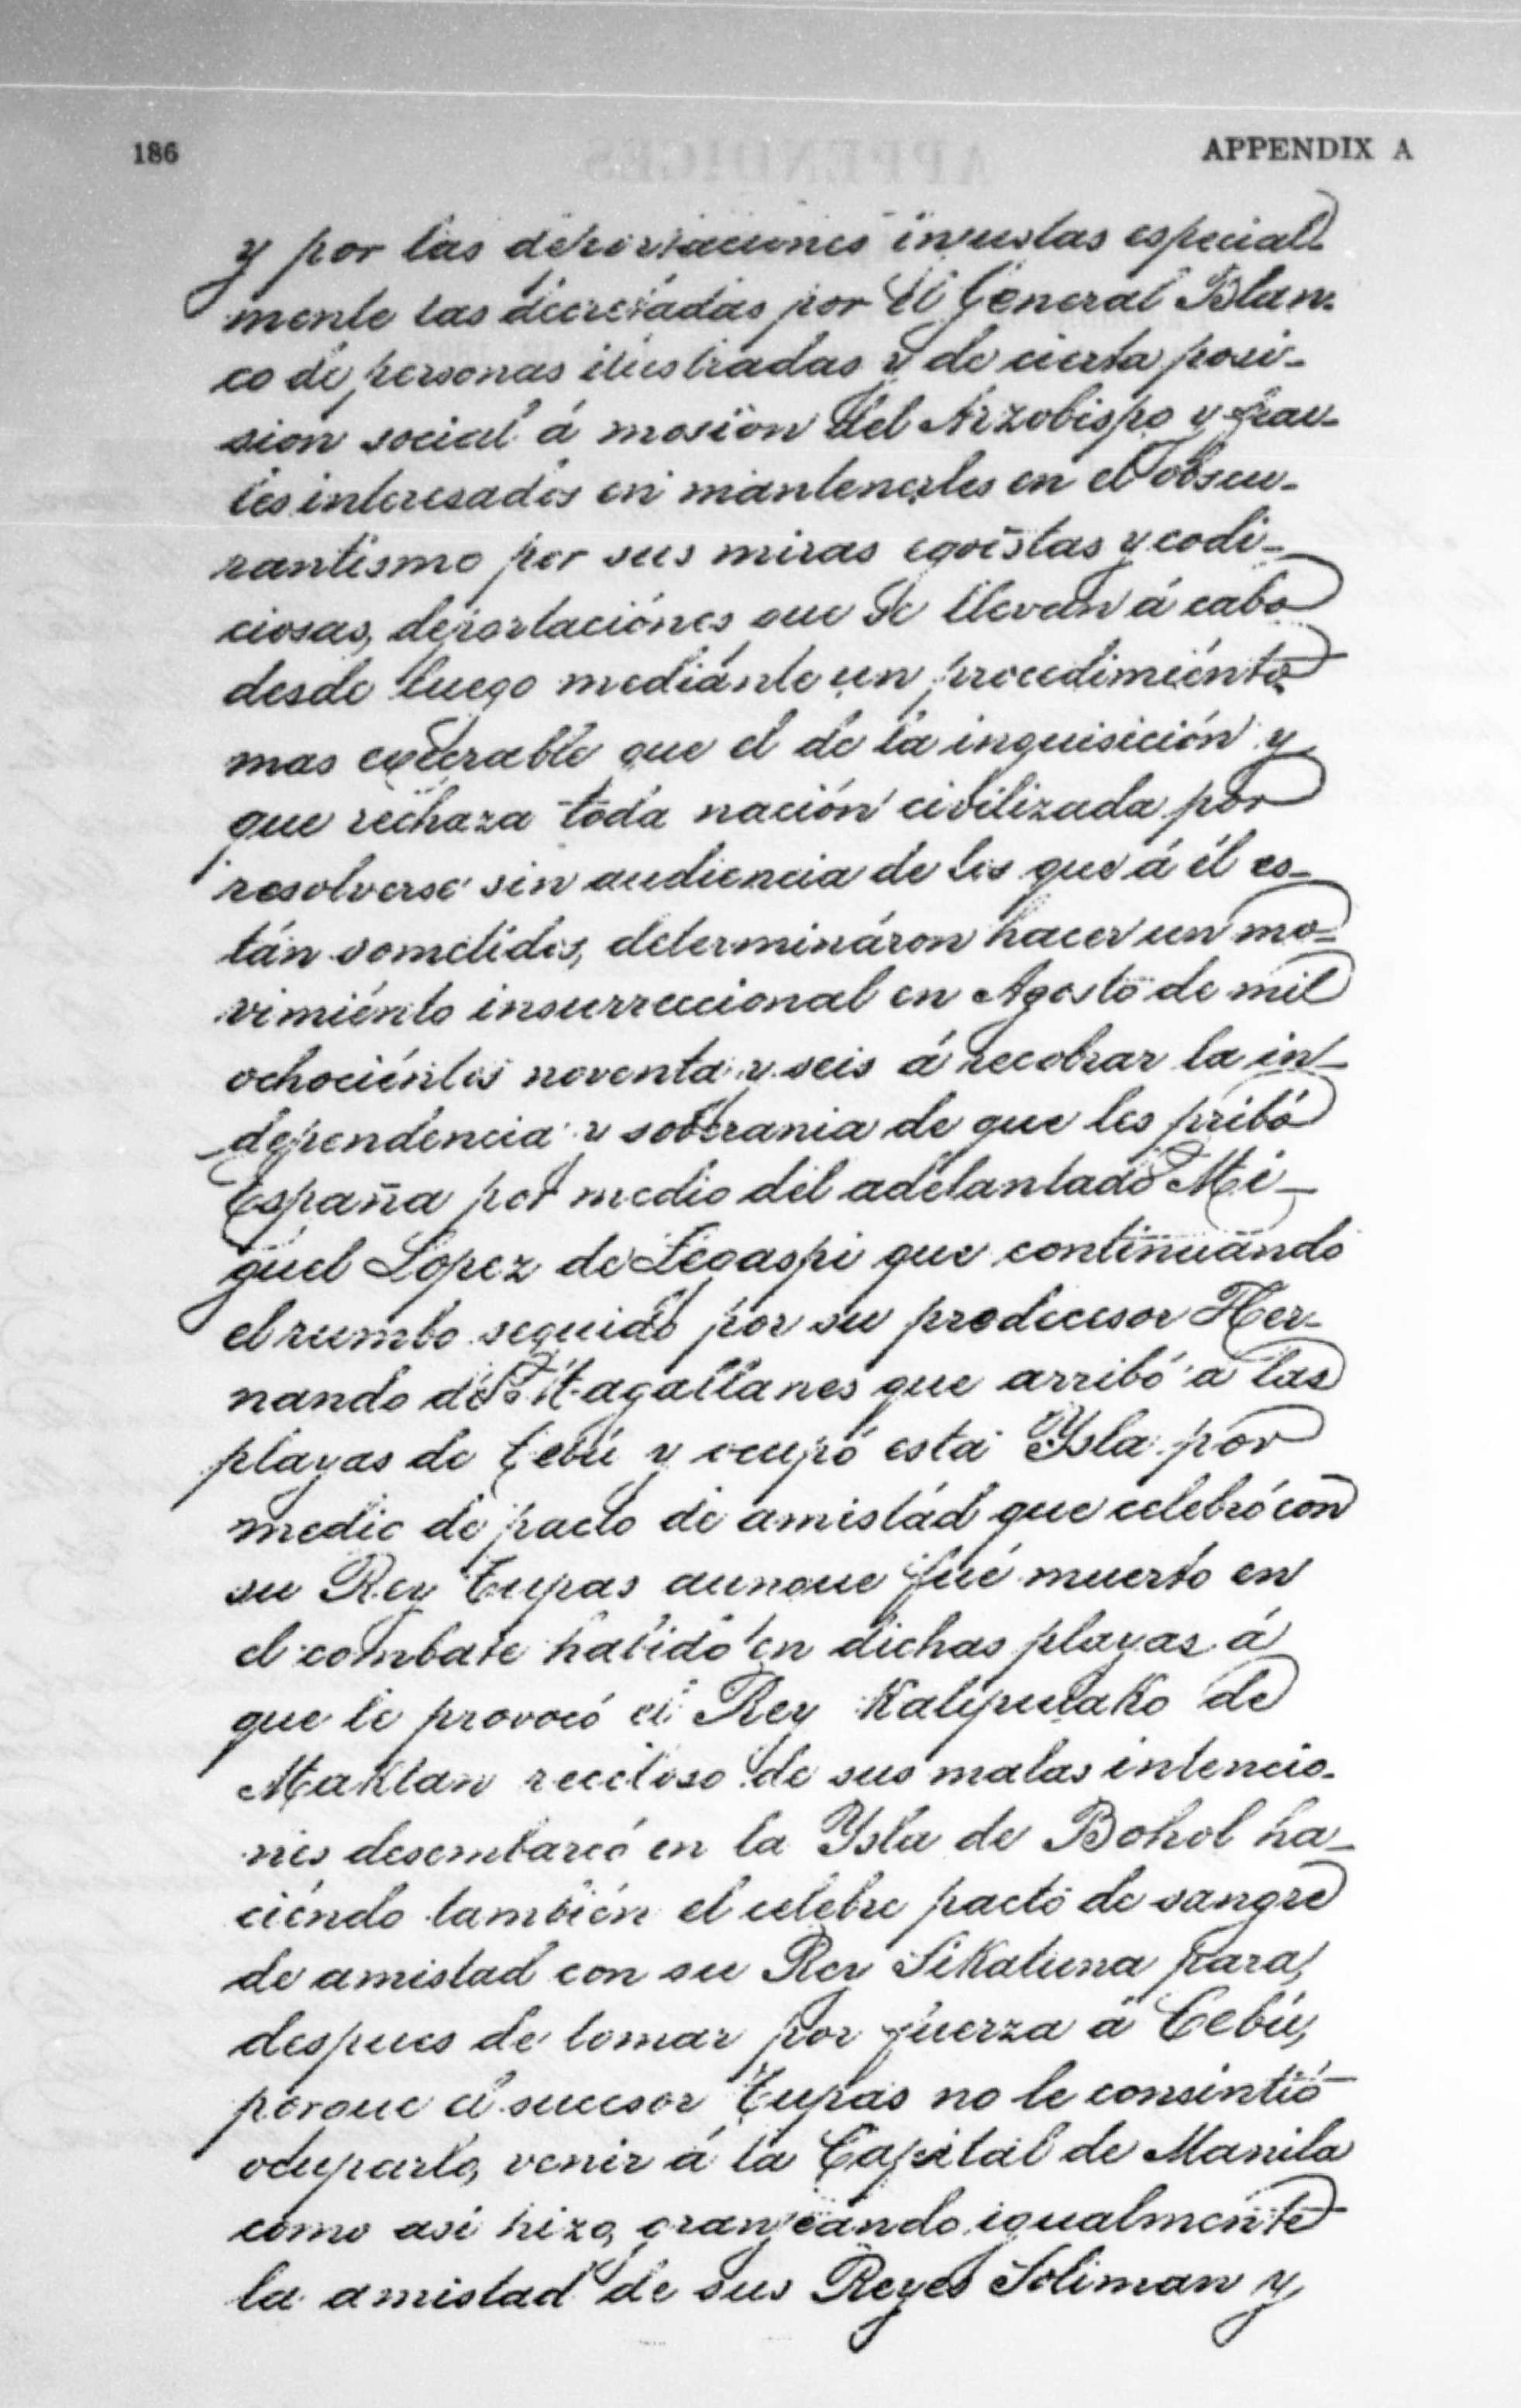 186
APPENDIX A
y por las deportaciones injustas especial-
mente las decretadas por el General Blan-
co de personas ilustradas y de cierta posi-
sion social á mosion del Arzobispo y frai-
les interesados en mantenerles en el obscu-
rantismo por sus miras egoistas y codi-
ciosas, deportaciónes que se llevan á cabo
desde luego mediánte un procedimiénto
mas execrable que el de la inquisición y
que rechaza toda nación civilizada por
resolverse sin audiencia de los que á él es-
tán sometidos, determináron hacer un mo-
vimiénto insurreccional en Agosto de mil
ochociéntos noventa y seis á recobrar la in-
dependencia y soberania de que les pribó
España por medio del adelantado Mi-
guel Lopez de Legaspi que continuándo
el rumbo seguido por su predecesor Her-
nando de Magallanes que arribó a las
playas de Cebú y ocupó esta Ysla por
medio de pacto de amistád que celebró con
su Rey Tupas aunque fué muerto en
el combate habido en dichas playas á
que le provocó el Rey Kalipulako de
Maktan receloso de sus malas intencio-
nes desembarcó en la Ysla de Bohol ha-
ciéndo también el celebre pacto de sangre
de amistad con su Rey Sikatuna para,
despues de tomar por fuerza á Cebú,
porque el sucesor Tupas no le consintió
ocuparlo, venir á la Capital de Manila
como asi hizo, granjeándo igualménte
la amistad de sus Reyes Soliman y